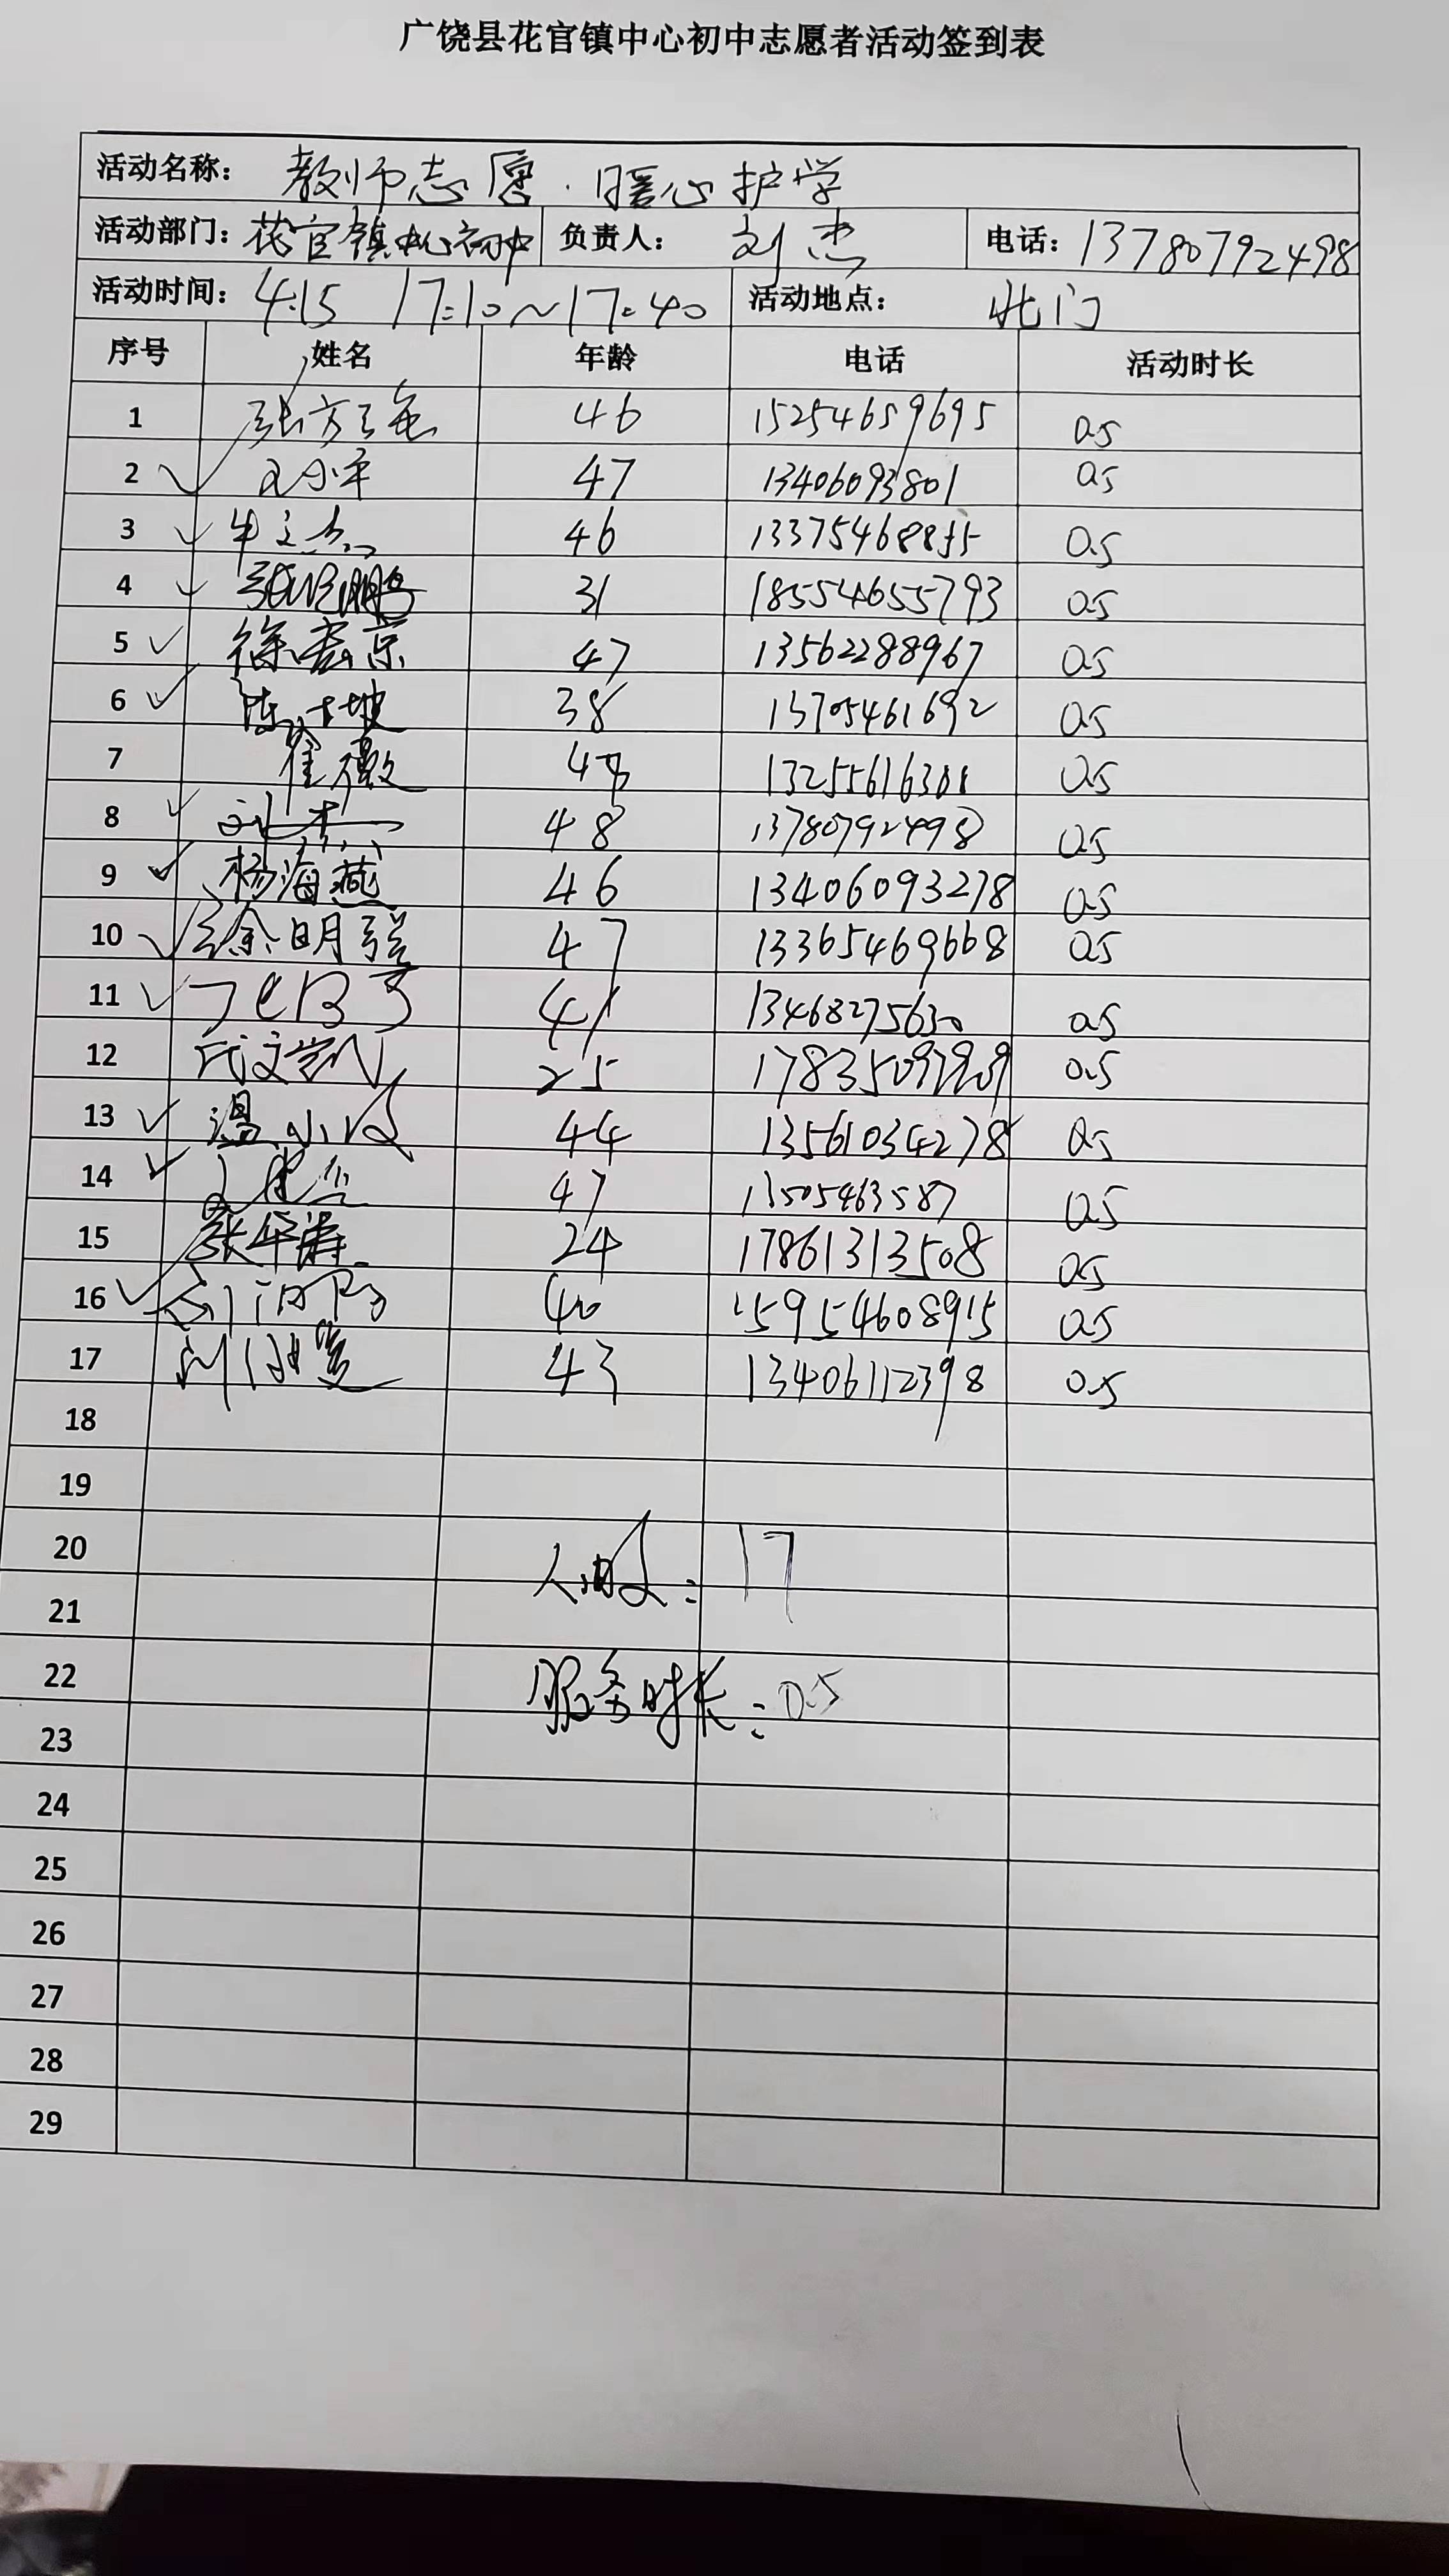 广饶县花官镇中心初中志愿者活动签到表
活动名称： 教师志愿·暖心护学
活动部门：花官镇中心初中 负责人： 刘杰 电话：13780792498
活动时间：4.15 17:10~17:40 活动地点： 北门
序号 姓名 年龄 电话 活动时长
1 46 15254659695 0.5
2 47 13406093801 0.5
3 46 0.5
4 31 18554655793 0.5
5 徐宏京 47 13562288967 0.5
6 38 13705461692 0.5
7 崔薇 0.5
8 刘杰 48 13780792498 0.5
9 杨海燕 46 13406093278 0.5
10 徐明强 47 13365469668 0.5
11 41 13468275630 0.5
12 25 0.5
13 温小波 44 13561034278 0.5
14 47 13505463587 0.5
15 张华涛 24 17861313508 0.5
16 40 15954608915 0.5
17 43 13406112398 0.5
18
19
20
人数：17
21
22
服务时长：0.5
23
24
25
26
27
28
29